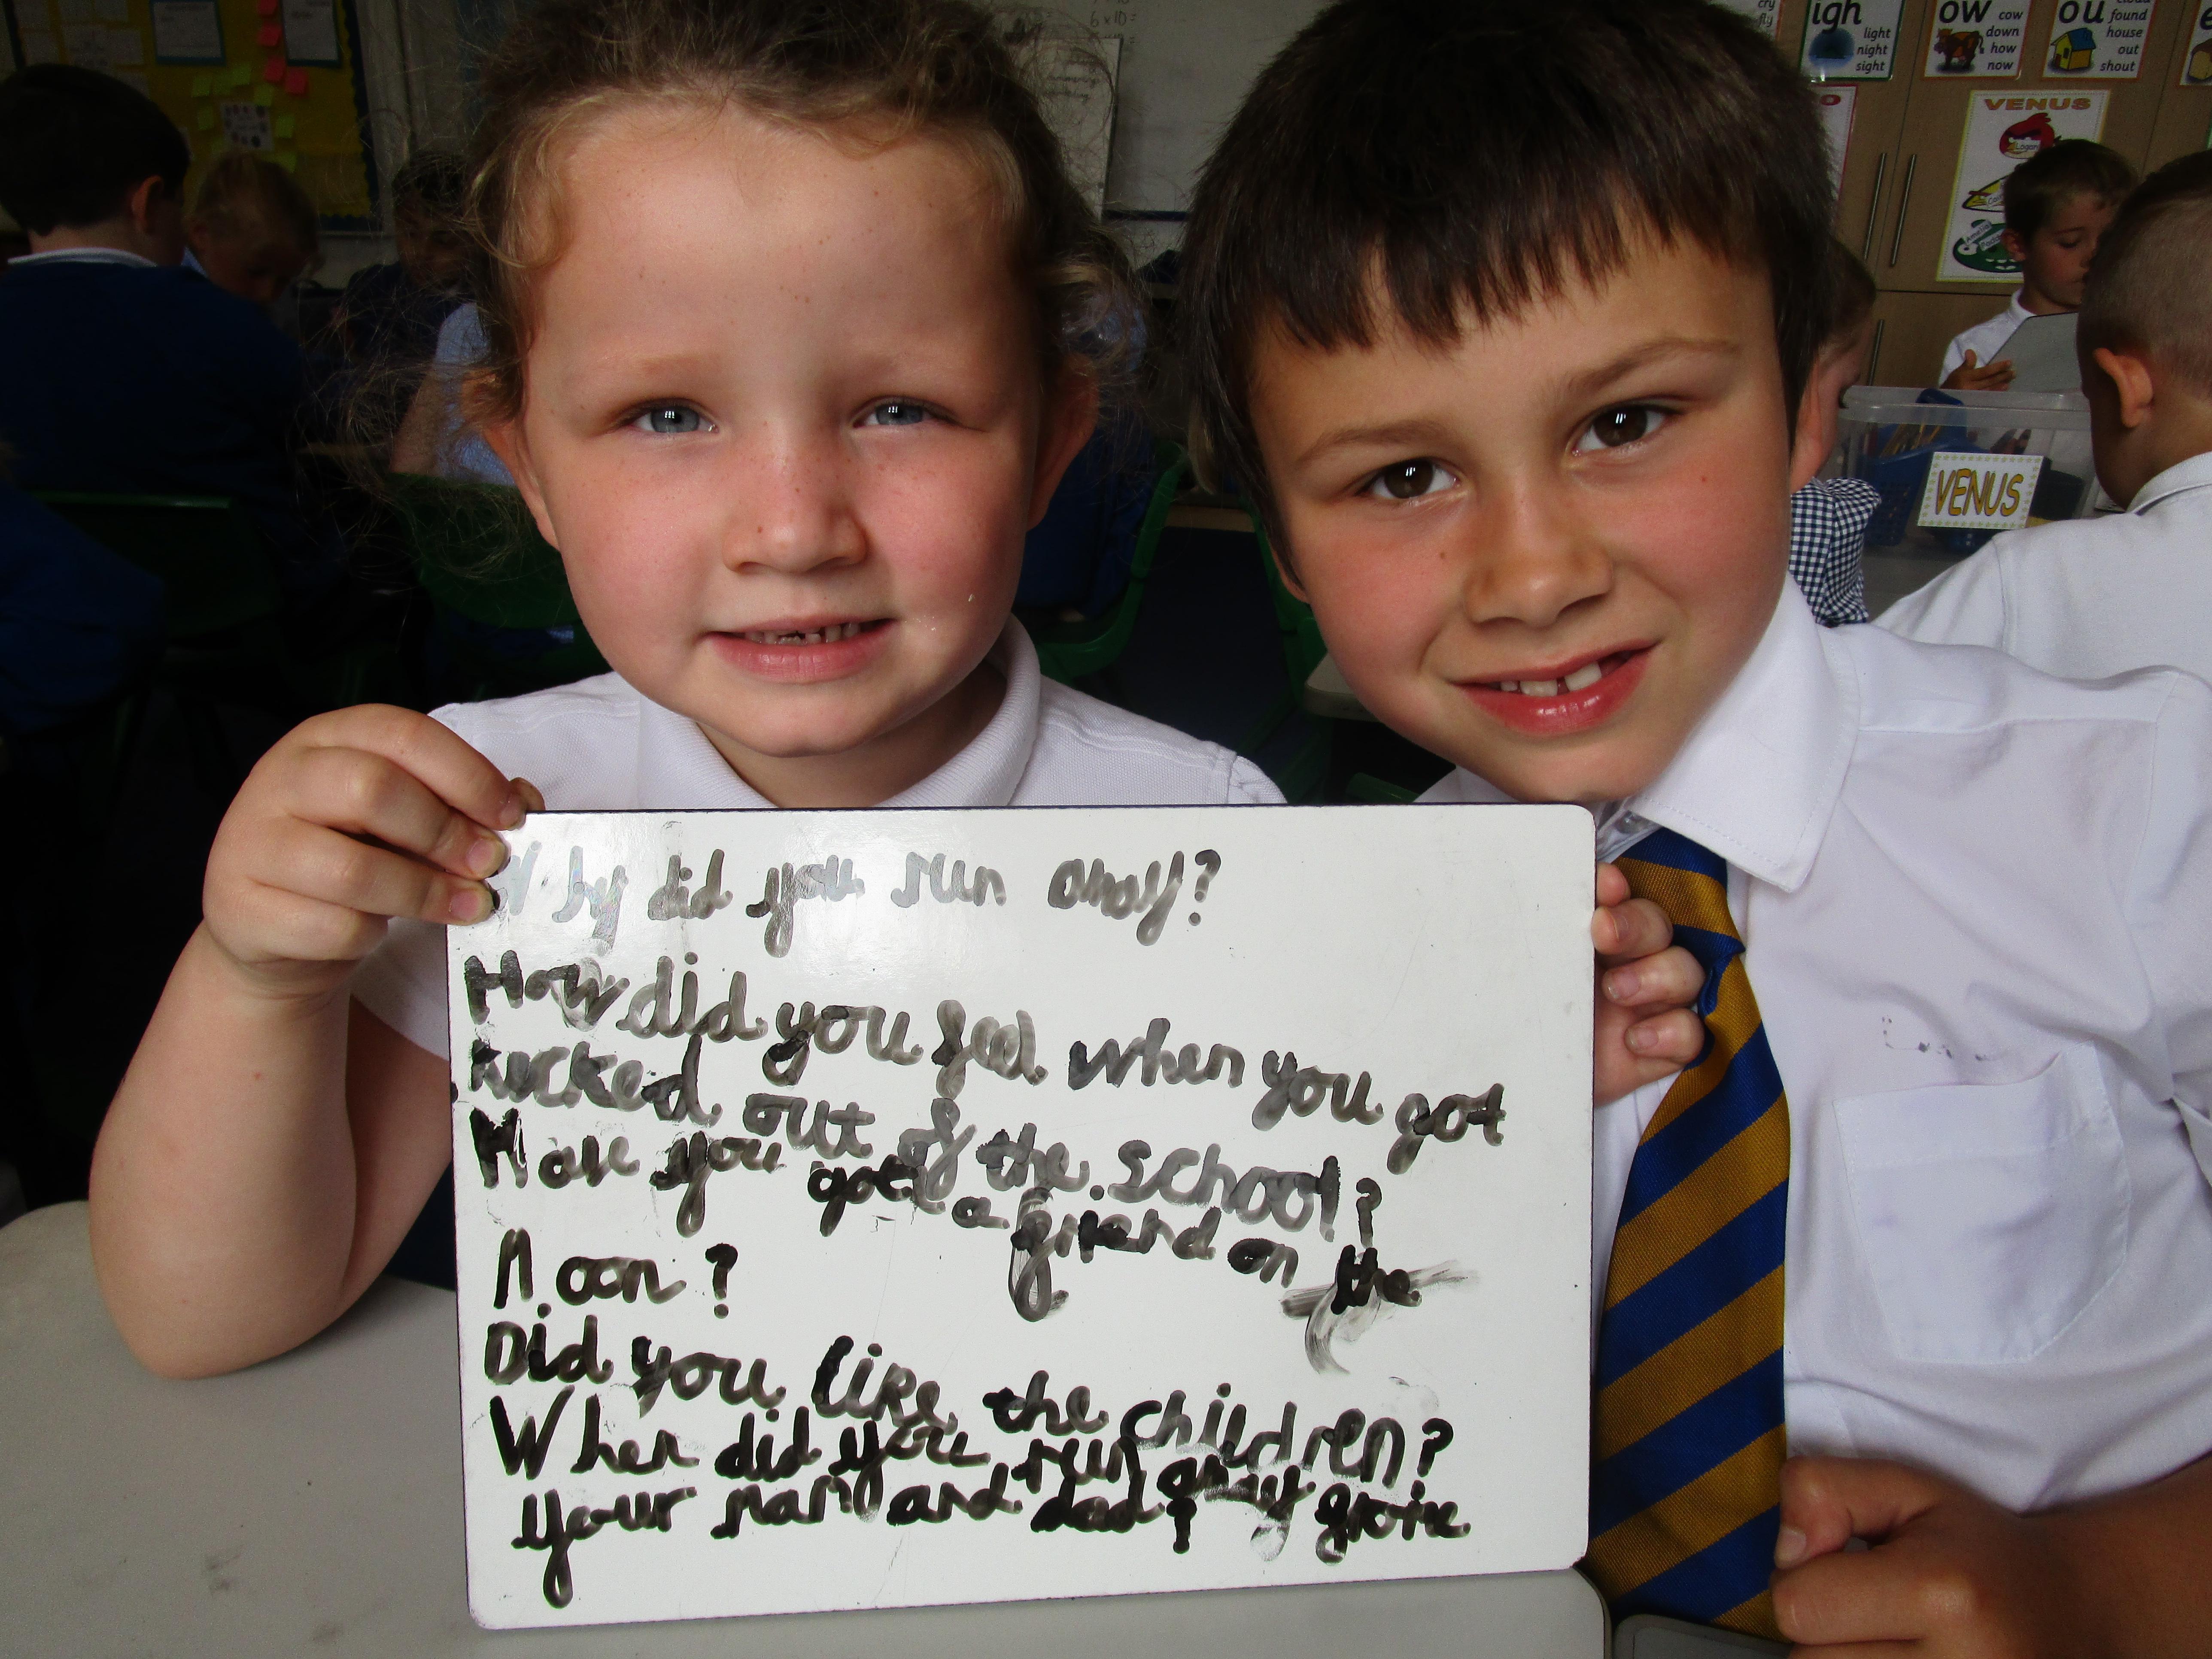 6 x 10 =
igh
light
night
sight
ow
cow
down
how
now
ou
cloud
found
house
out
shout
cry
fly
VENUS
Logan
VENUS
Why did you run away?
How did you feel when you got
kicked out of the school?
Have you got a friend on the
Moon?
Did you like the children?
When did you run away from
your mam and dad?